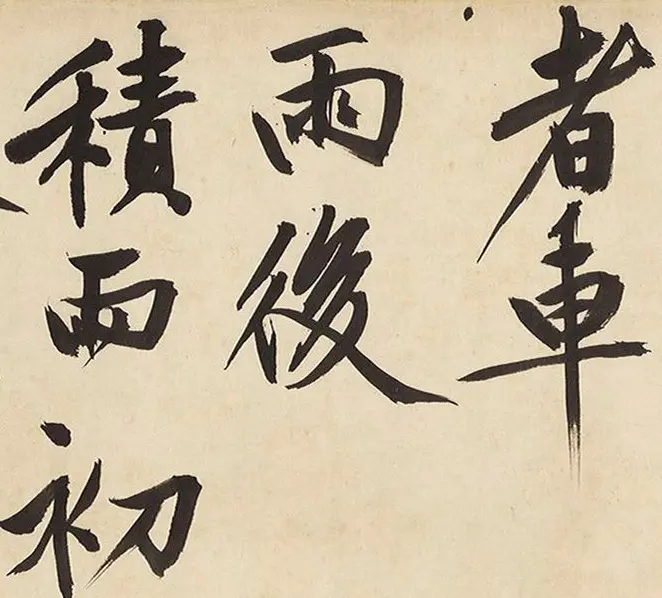 者車
雨後
積雨初